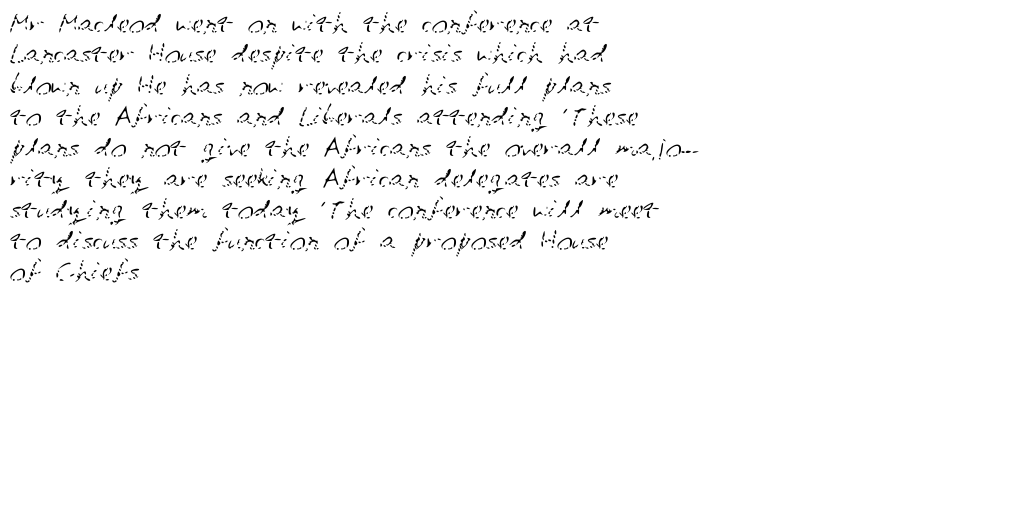 Mr Macleod went on with the conference at
Lancaster House despite the crisis which had
blown up He has now revealed his full plans
to the Africans and Liberals attending 'These
plans do not give the Africans the overall majo-
rity they are seeking African delegates are
studying them today 'The conference will meet
to discuss the function of a proposed House
of Chiefs